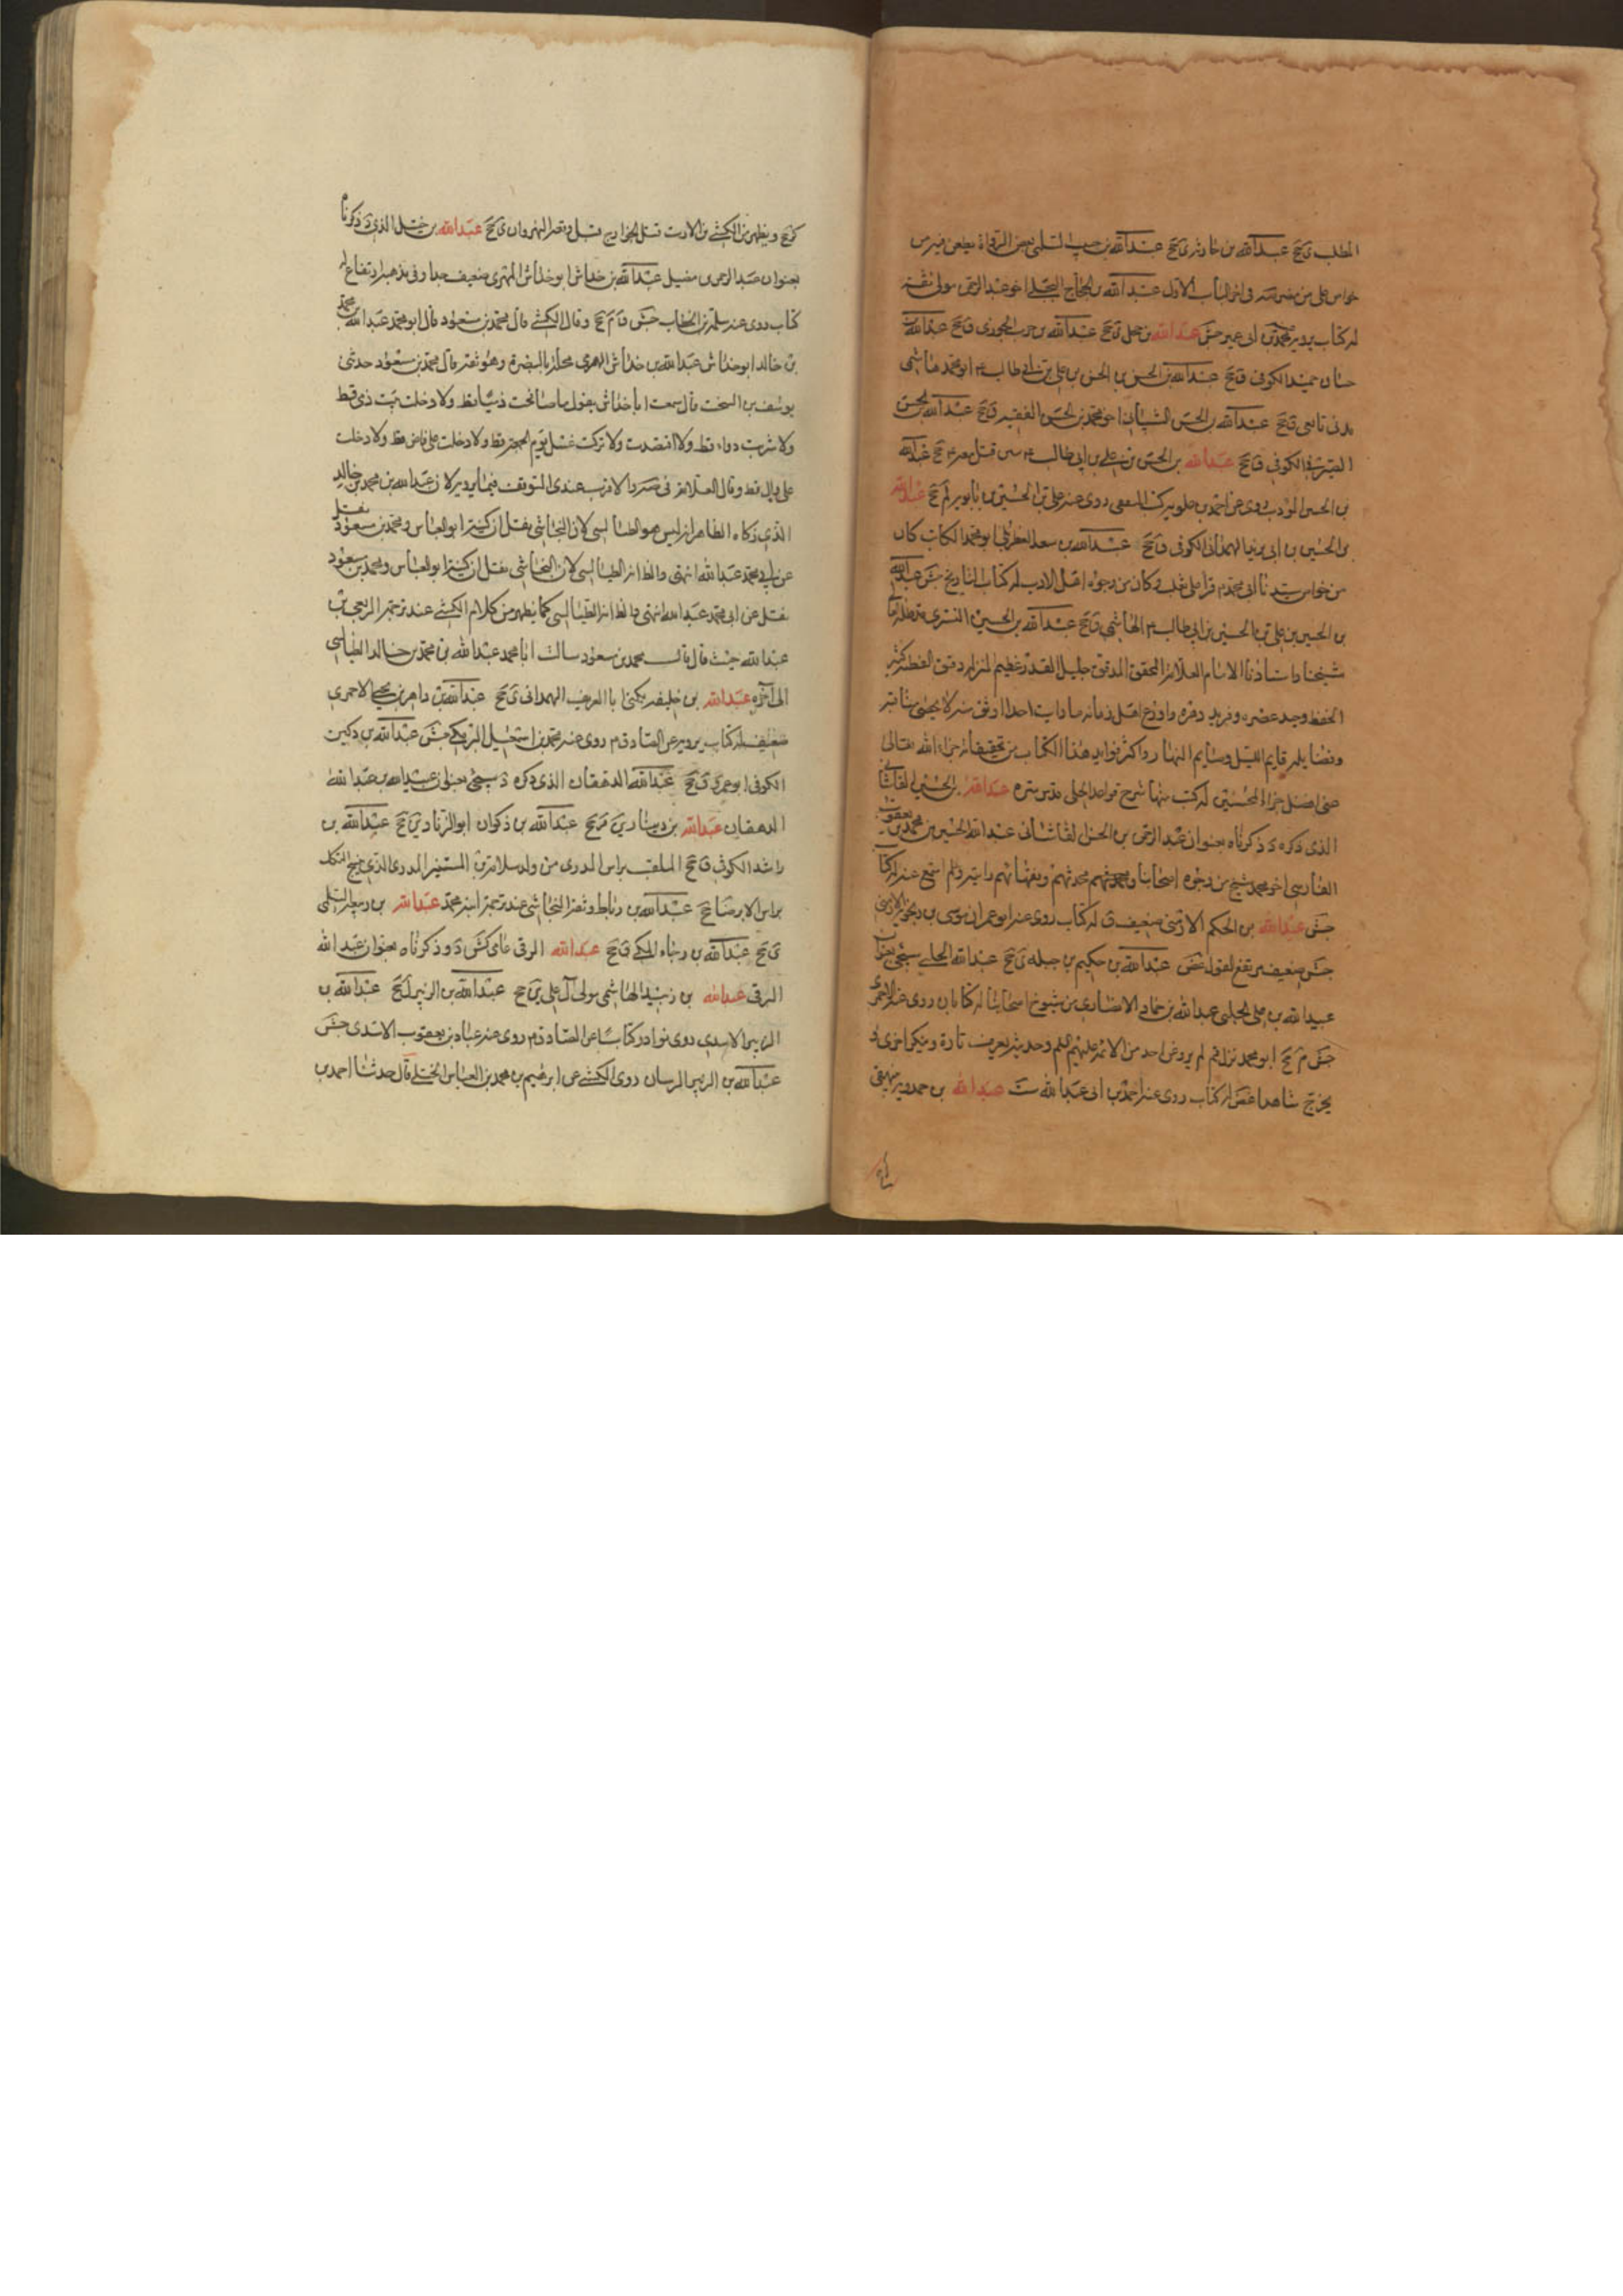 المطلب ی جخ عبدالله بن حارثة ی جخ عبدالله بن حبيب السلمی بعض الرواة يطعن فيه من
خواص علی من مضر قد فی اخر الباب الاول عبدالله بن الحجاج البجلی اخو عبدالرحمن مولی ثقة
له كتاب يرويه محمد بن ابی عمير جش عبدالله بن جعل ق جخ عبدالله بن حرب الجوزی ق جخ عبدالله بن
حسان حميد الكوفی ق جخ عبدالله بن الحسن بن الحسن بن علی بن ابی طالب ع ابو محمد هاشمی
مدنی تابعی ق جخ عبدالله بن الحسن الشيبانی اخو محمد بن الحسن الفقيه ق جخ عبدالله بن الحسن
الصيرفی الكوفی ق جخ عبدالله بن الحسن بن علی بن ابی طالب ع سن قتل معه ع جخ عبدالله
بن الحسن المؤدب روی عن احمد بن علويه كتب الثقفی روی عنه علی بن الحسين بن بابويه لم جخ عبدالله
بن الحسين بن ابی يزيد الهمدانی الكوفی ق جخ عبدالله بن سعد القطربلی ابو محمد الكاتب كان
من خواص سيدنا ابی محمد ع قرأ علی ثعلب وكان من وجوه اهل الادب له كتاب التاريخ جش عبدالله
بن الحسين بن علی بن الحسين بن ابی طالب ع الهاشمی ق جخ عبدالله بن الحسين التستری مد ظله
شيخنا واستادنا الامام العلامة المحقق المدقق جليل القدر عظيم المنزلة دقيق الفطنة كثير
الحفظ وحيد عصره وفريد دهره واورع اهل زمانه ما رايت احدا اوثق منه لا يحصی مناقبه
وفضايله قايم الليل وصايم النهار واكثر فوايد هذا الكتاب من تحقيقاته جزاه الله تعالی
عنی افضل جزاء المحسنين له كتب منها شرح قواعد الحلی قدس سره عبدالله بن الحسين القاشانی
الذی ذكره د ذكرناه بعنوان عبدالرحمن بن الحسن القاشانی عبدالله الحسين بن محمد بن يعقوب
الفارسی اخو محمد شيخ من وجوه اصحابنا ومحدثهم وفقهائهم رايته ولم اسمع عنه له كتاب
جش عبدالله بن الحكم الارمنی ضعيف ق له كتاب روی عنه ابو عمران موسی بن رنجويه الارمنی
جش ضعيف مرتفع القول غض عبدالله بن حكيم بن جبلة ی جخ عبدالله الحلبی سيجی بعنوان
عبيدالله بن علی الحلبی عبدالله بن حماد الانصاری من شيوخ اصحابنا له كتابان روی عنه الاحمری
جش م جخ ابو محمد نزل قم لم يرو عن احد من الائمة عليهم السلم وحديثه يعرف تارة وينكر اخری و
يخرج شاهدا غض له كتاب روی عنه احمد بن ابی عبدالله ست عبدالله بن حمدويه بيهقی
كر جخ ويظهر من الكشی بن الارت قتل الخوارج قبل وقعة النهروان ی جخ عبدالله بن ختل الذی د ذكرناه
بعنوان عبدالرحمن عبدالله بن خداش ابو خداش المهری ضعيف جدا وفی مذهبه ارتفاع له
كتاب روی عنه سلمة بن الخطاب جش ق م جخ وقال الكشی قال محمد بن مسعود قال ابو محمد عبدالله بن محمد
بن خالد ابو خداش عبدالله بن خداش المهری محلة بالبصرة وهو ثقة قال محمد بن مسعود حدثنی
يوسف بن السخت قال سمعت ابا خداش يقول ما صافحت ذميا قط ولا دخلت بيت ذمی قط
ولا شربت دواء قط ولا افتصدت ولا تركت غسل يوم الجمعة قط ولا دخلت علی قاض قط ولا دخلت
علی وال قط وقال العلامة فی صه والاقرب عندی التوقف فيما يرويه لان عبدالله بن محمد بن خالد
الذی زكاه الظاهر انه ليس هو الطيالسی لان النجاشی نقل ان كنيته ابو العباس ومحمد بن مسعود نقل
عن ابی محمد عبدالله انتهی والظ انه الطيالسی لان النجاشی نقل ان كنيته ابو العباس ومحمد بن مسعود
نقل عن ابی محمد عبدالله انتهی والظ انه الطيالسی كما يظهر من كلام الكشی عند ترجمة الربعی بن
عبدالله حيث قال قال محمد بن مسعود سالت ابا محمد عبدالله بن محمد بن خالد الطيالسی
الی آخره عبدالله بن خليفة يكنی ابا العريف الهمدانی ی جخ عبدالله بن داهر بن يحيی الاحمری
ضعيف له كتاب يرويه عن الصادق م روی عنه محمد بن اسمعيل البرمكی جش عبدالله بن دكين
الكوفی ابو عمرو ق جخ عبدالله الدهقان الذی ذكره د سيجی بعنوان عبيدالله بن عبدالله
الدهقان عبدالله بن دينار ين ق جخ عبدالله بن ذكوان ابو الزناد ين جخ عبدالله بن
راشد الكوفی ق جخ الملقب براس المدری من ولد
براس الابرضا جخ عبدالله بن رباط وثقه النجاشی عند ترجمة ابنه محمد عبدالله بن ربيعة السلمی
ی جخ عبدالله بن رجاء المكی ق جخ عبدالله الرقی عامی كش د وذكرناه بعنوان عبدالله
الرقی عبدالله بن زبيد الهاشمی مولی آل علی ين جخ عبدالله بن الزبير ل جخ عبدالله بن
الزبير الاسدی روی نوادر كتابا عن الصادق م روی عنه عباد بن يعقوب الاسدی جش
عبدالله بن الزبير الرسان روی الكشی عن ابرهيم بن محمد بن العباس الختلی قال حدثنا احمد بن